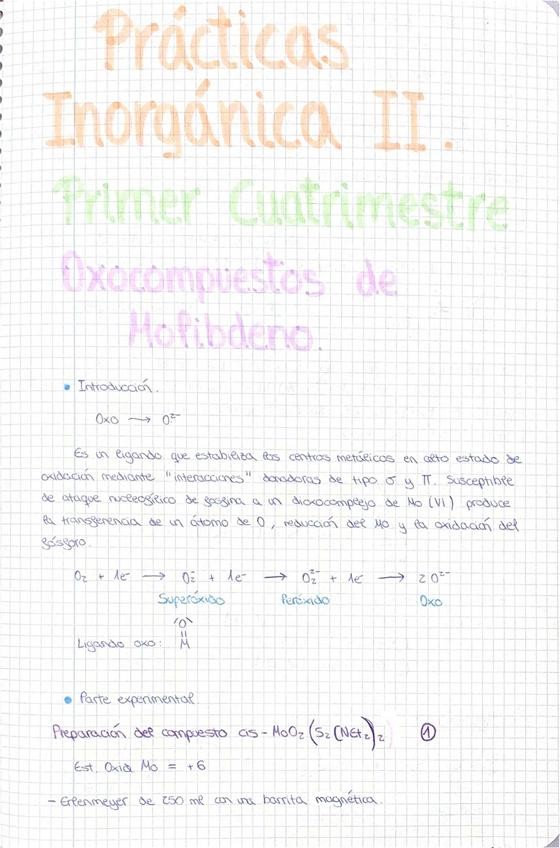 Prácticas
Inorgánica II.
Primer Cuatrimestre
Oxocompuestos de
Molibdeno.
• Introducción.
Oxo → O²⁻
Es un ligando que estabiliza los centros metálicos en alto estado de
oxidación mediante "interacciones" donadoras de tipo σ y π. Susceptible
de ataque nucleofílico de fosfina a un dioxocomplejo de Mo (VI) produce
la transferencia de un átomo de O, reducción del Mo y la oxidación del
fósforo.
O₂ + 1e⁻ → O₂⁻ + 1e⁻ → O₂²⁻ + 1e⁻ → 2O²⁻
Superóxido Peróxido Oxo
O
Ligando oxo: M
• Parte experimental
Preparación del compuesto cis-MoO₂(S₂(NEt₂)₂ ①
Est. Oxid. Mo = +6
- Erlenmeyer de 250 ml con una barrita magnética.